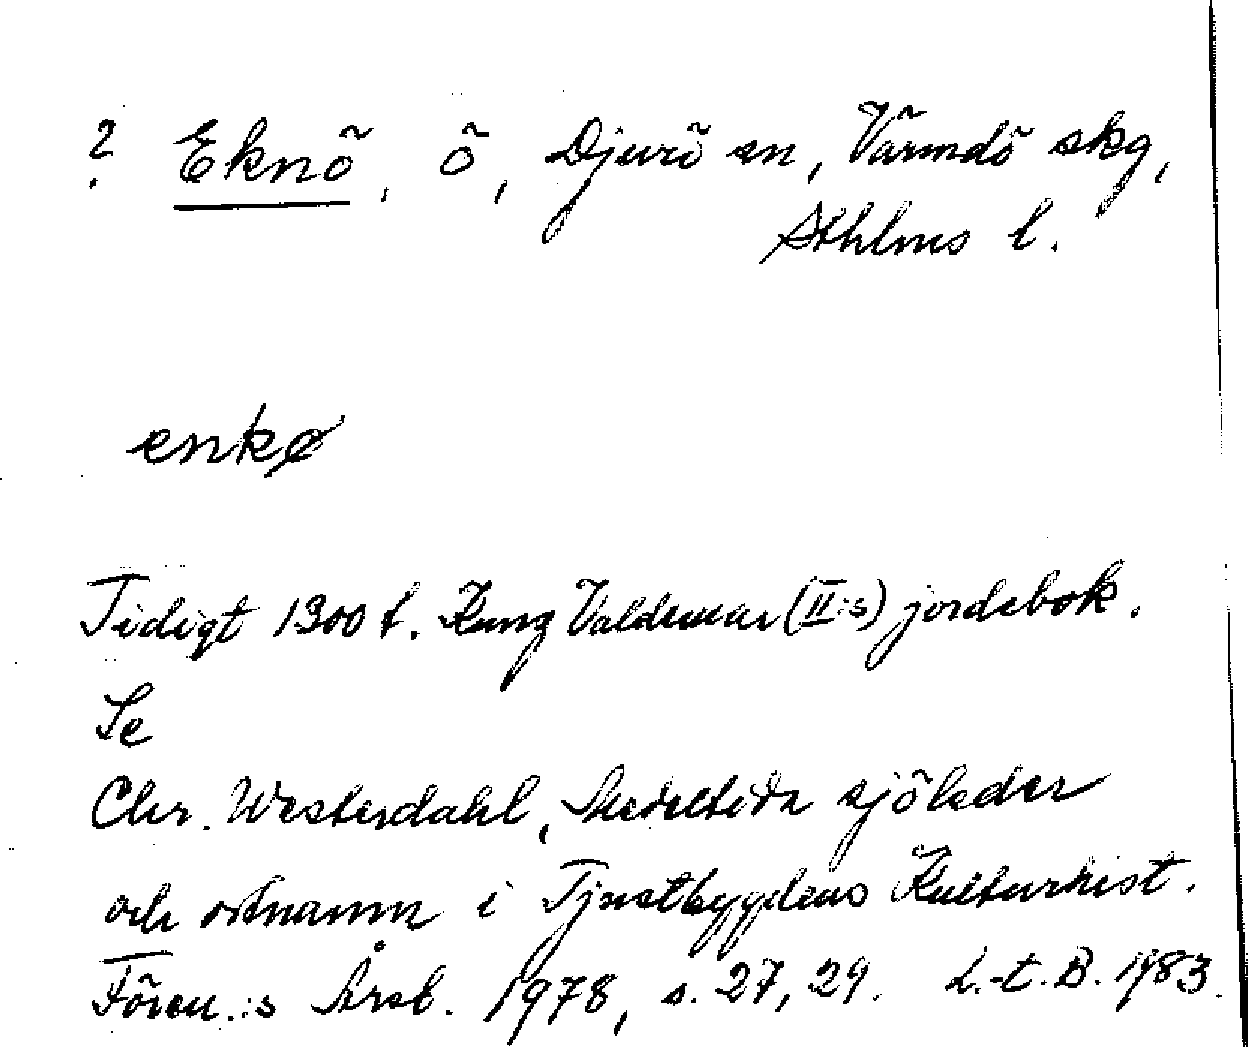 ? Eknö, ö, Djurö sn, Värmdö skg,
Sthlms l.
enkø
Tidigt 1300 t. Kung Valdemar (II:s) jordebok.
Se
Chr. Westerdahl, Medeltida sjöleder
och ortnamn i Tjustbygdens Kulturhist.
Fören.:s Årsb. 1978, s. 27, 29. L.-t. B. 1983.